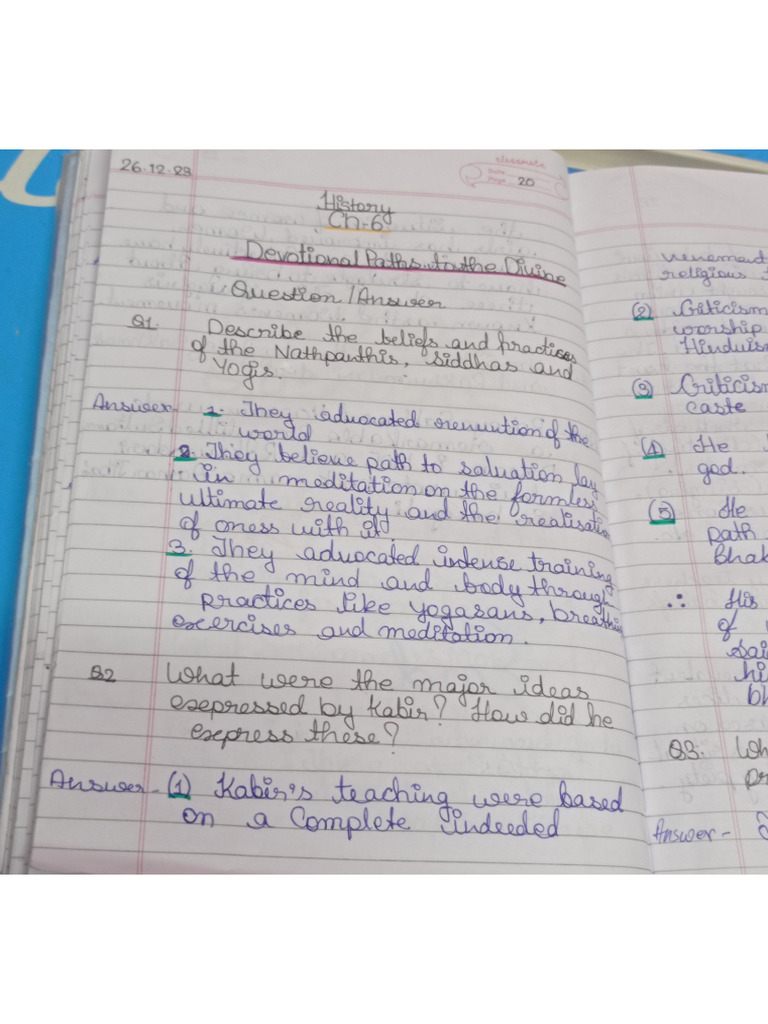 classmate
Date
Page 20
26.12.23
History
Ch-6
Devotional Paths to the Divine
Question/Answer
Q1. Describe the beliefs and practices
of the Nathpanthis, Siddhas and
Yogis.
Answer- 1. They advocated renuntion of the
world
2. They believe path to saluation lay
in meditation on the formless
ultimate reality and the realisation
of oness with it
3. They advocated intense training
of the mind and body through
practices like yogasans, breathing
exercises and meditation.
Q2 What were the major ideas
expressed by Kabir? How did he
express these?
Answer- (1) Kabir's teaching were based
on a Complete indeeded
religious
(2) Criticism
worship
Hinduism
(3) Criticism
caste
(4) He
god.
(5) He
path
Bhak
∴ His
of
sai
hi
bh
Q3. Wh
pr
Answer-